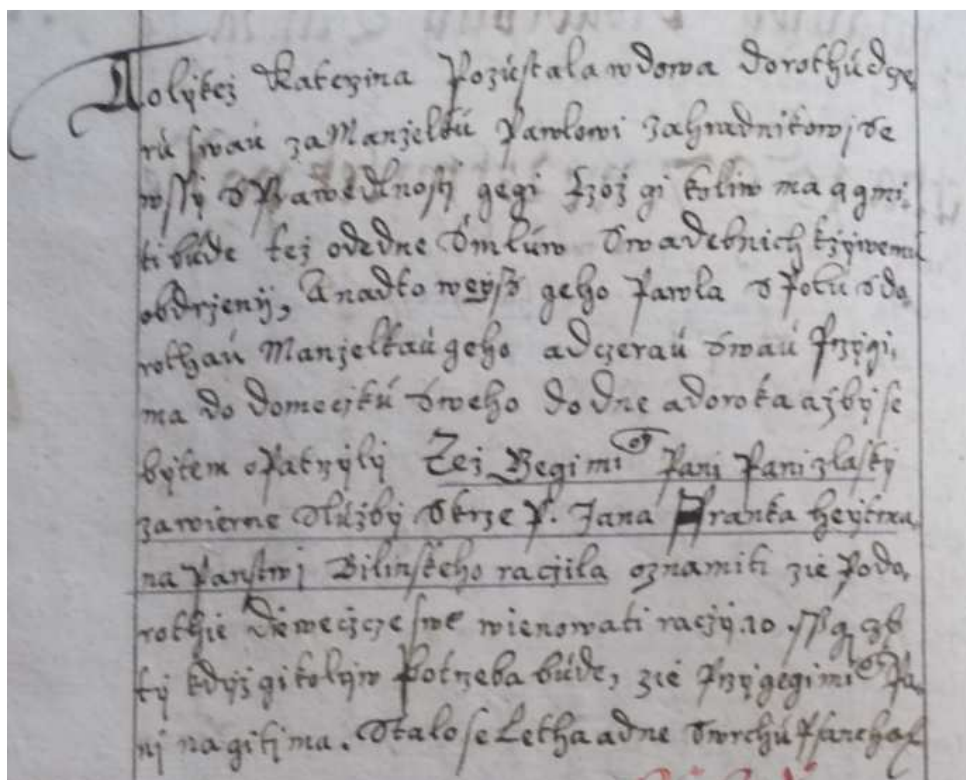 Tolikéž Kateržina Pozůstala wdowa Dorothu dcze,
rů swaů za Manželků Pawlowi Zahradnikowj se
wssý Sprawedlnostj gegi Czož gi koliw ma a gmi,
ti bůde též odedne Smlůw Swadebnich
obdrženij, A nadto weyss geho Pawla Spolu s Do,
rothaů Manželkaů geho a dczeraů swaů Przýgi,
ma do domeczků Sweho do dne a doroka ažbý se
býtem opatrzýlý Též Gegi mi Panj Panj z laský
za wierne Slůžbý Skrze P. Jana Franka heýtma,
na Panstwj Bilinskeho raczila oznamiti zie Po do,
rothie diewecžcze swe wienowati raczý .10. ssg
tý když gi kolýw Potrzeba bůde, zie Przý gegi mi Pa,
nj nagiti ma. Stalo se Letha a dne Swrchů Psaneho